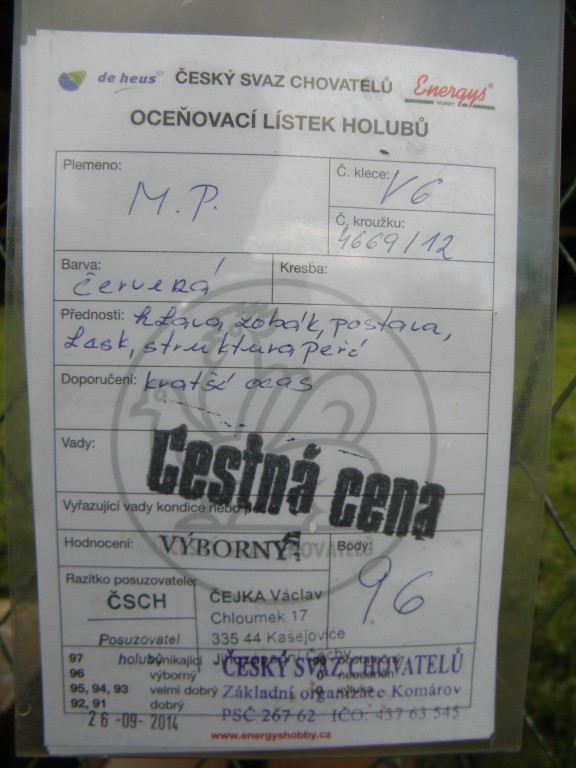 de heus ČESKÝ SVAZ CHOVATELŮ Energys HOBBY
OCEŇOVACÍ LÍSTEK HOLUBŮ
Plemeno: M.P.
Č. klece: V6
Č. kroužku: 4669/12
Barva: červená Kresba:
Přednosti: hlava, zobák, postava,
lesk, struktura peří
Doporučení: kratší ocas
Vady:
Čestná cena
Vyřazující vady kondice nebo
Hodnocení: VÝBORNÝ Body: 96
Razítko posuzovatele:
ČSCH
Posuzovatel
holubů
ČEJKA Václav
Chloumek 17
335 44 Kasejovice
97 vynikající
96 výborný
95, 94, 93 velmi dobrý
92, 91 dobrý
ČESKÝ SVAZ CHOVATELŮ
Základní organizace Komárov
PSČ 267 62 IČO: 437 63 545
26 -09- 2014
www.energyshobby.cz